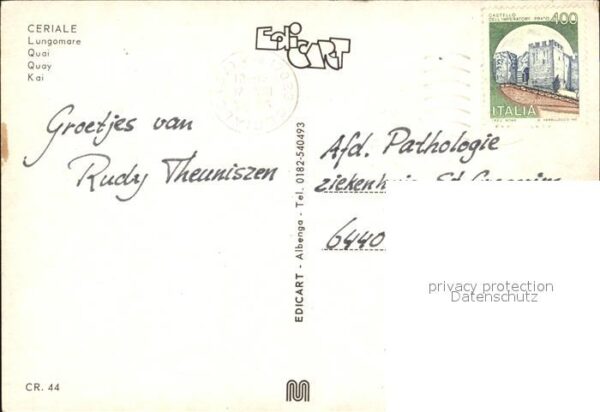 CERIALE
Lungomare
Quai
Quay
Kai
EdiCART
CASTELLO
DELL'IMPERATORE PRATO 400
ITALIA
Groetjes van
Rudy Theuniszen
Afd. Pathologie
6440
EDICART - Albenga - Tel. 0182-540493
privacy protection
Datenschutz
CR. 44